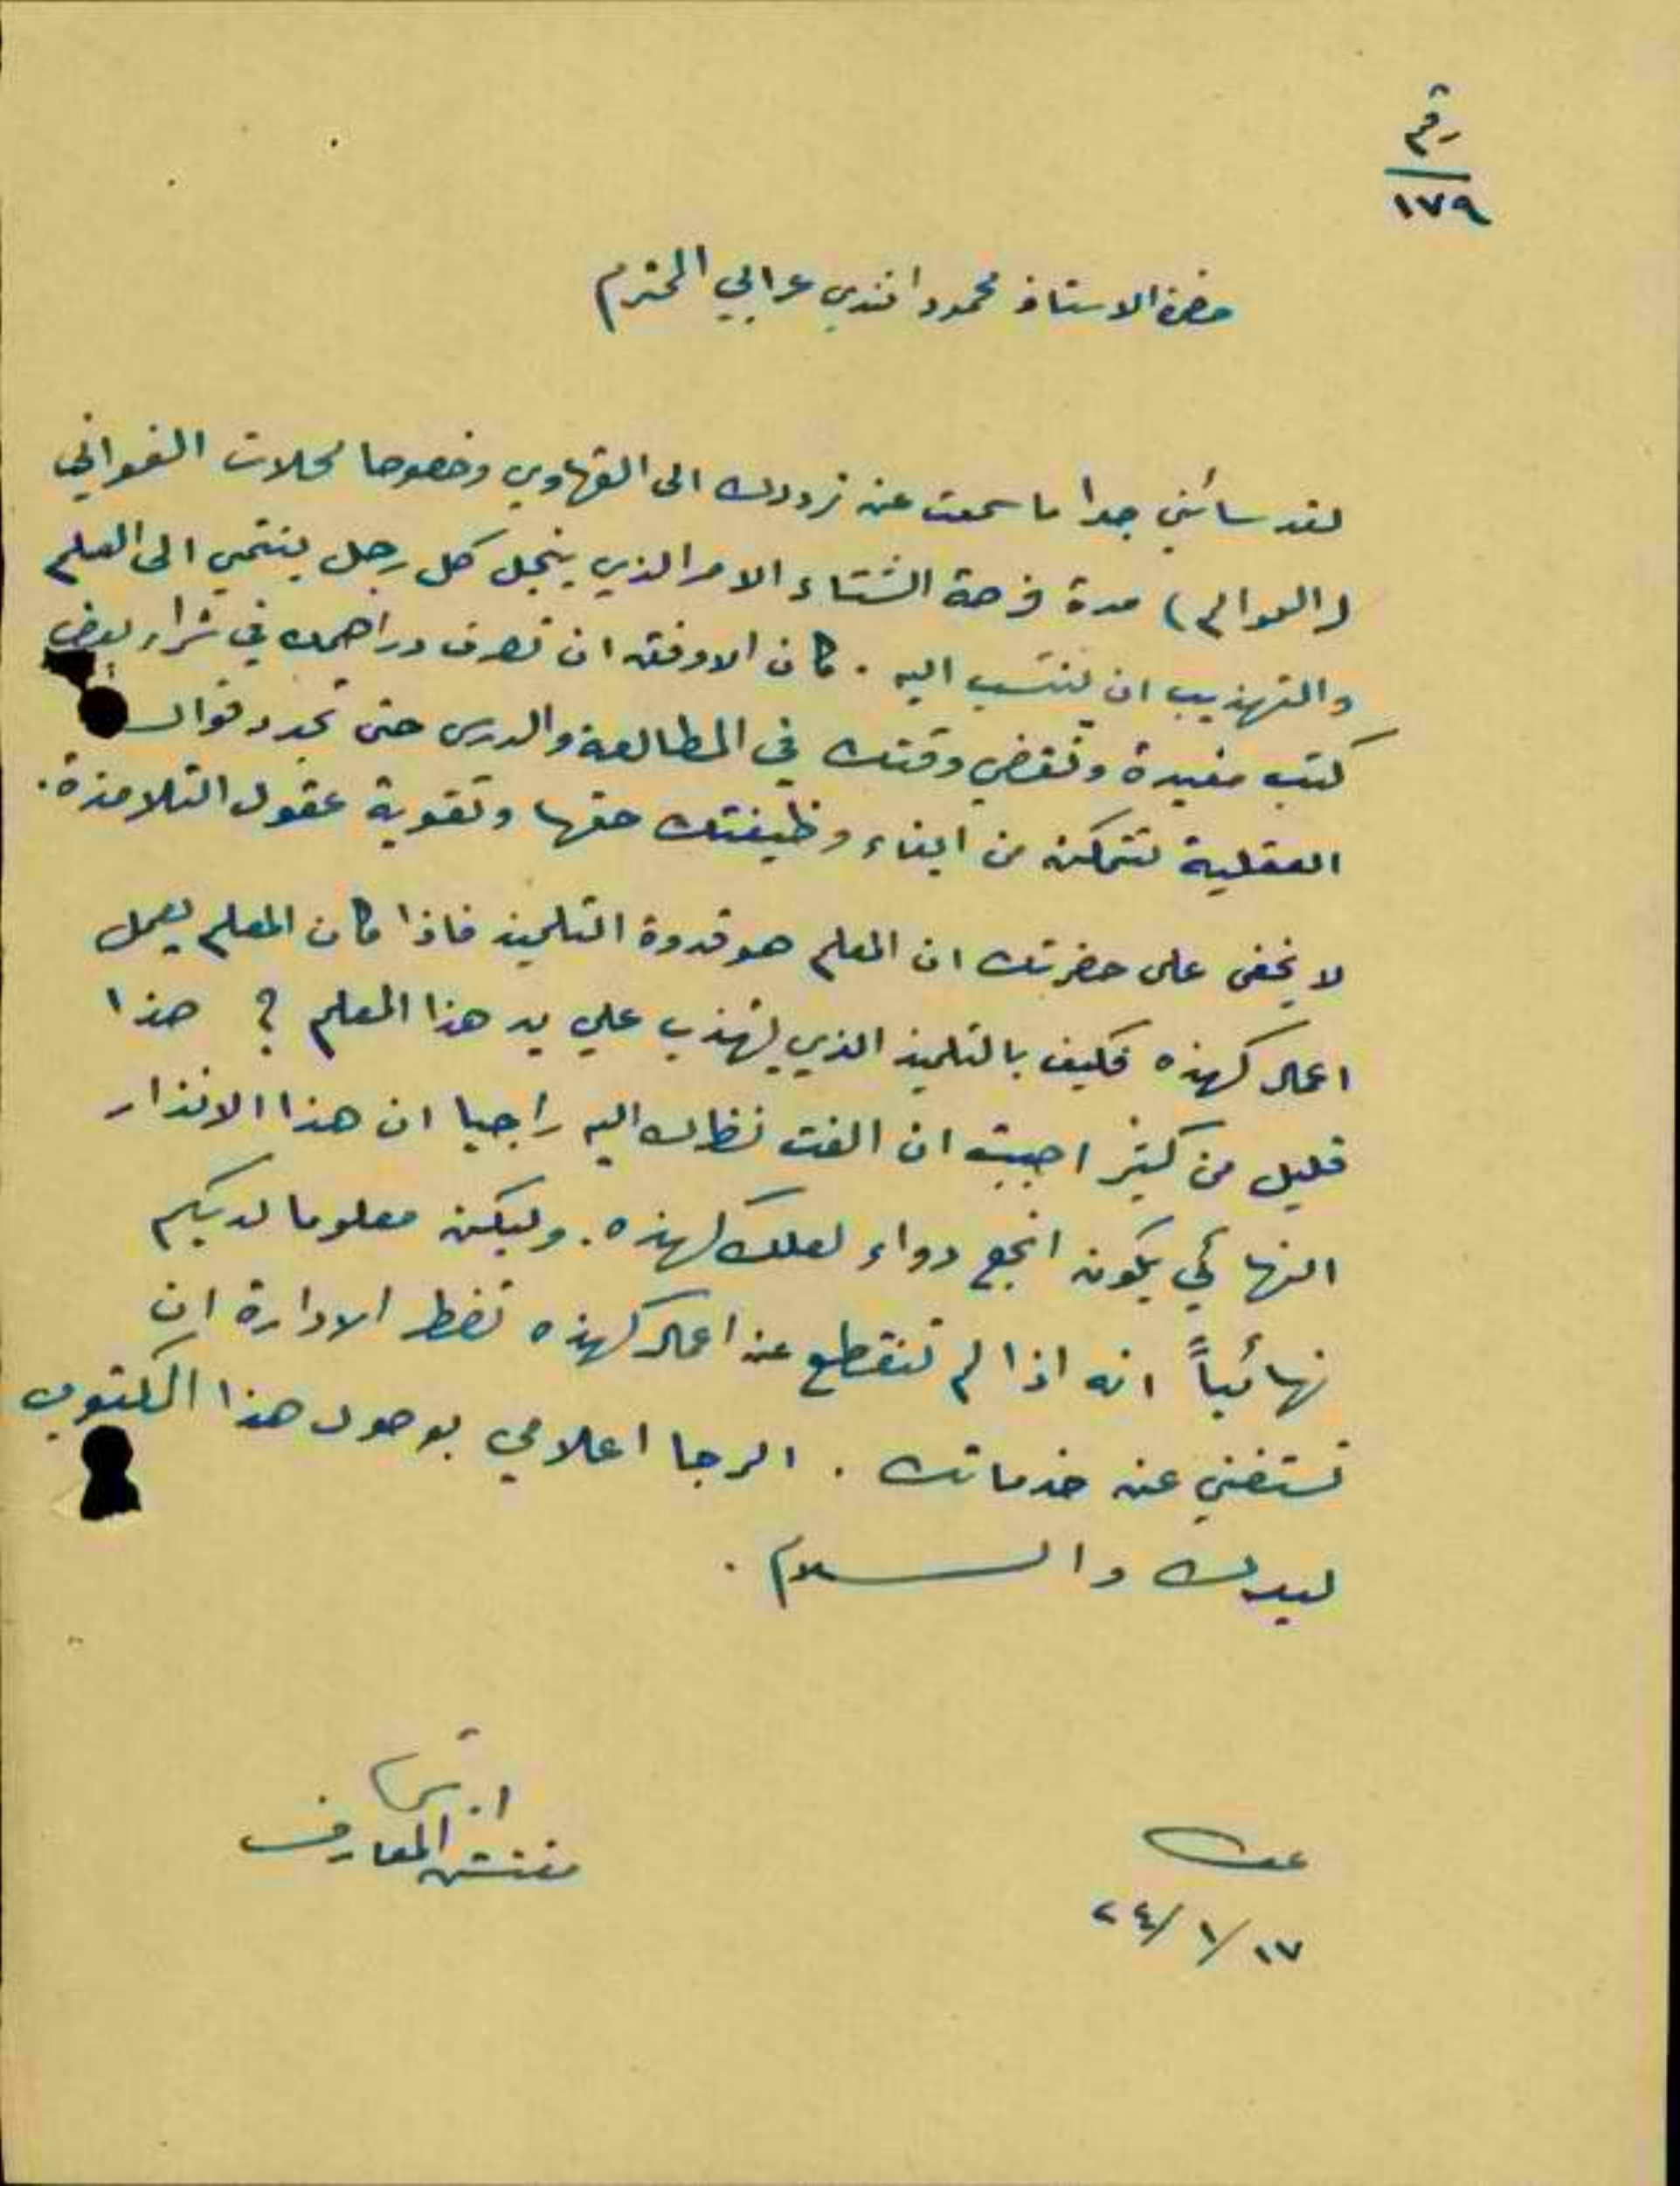 رقم
١٧٩
حضرة الاستاذ محمود افندي عرابي المحترم
لقد سائني جدا ما سمعت عنه ترددك الى القهاوي وخصوصا محلات الغواني
(العوالم) مدة فرصة الشتاء الامر الذي يخجل كل رجل ينتمي الى العلم
والتهذيب ان ينتسب اليه . كان الاوفق ان تصرف دراهمك في شراء بعض
كتب مفيدة وتقضي وقتك في المطالعة والدرس حتى تجدد قواك
العقلية لتتمكن من ايفاء وظيفتك حقها وتقوية عقول التلامذة .
لا يخفى على حضرتك ان المعلم هو قدوة التلميذ فاذا كان المعلم يعمل
اعمال كهذه فكيف بالتلميذ الذي يتهذب علي يد هذا المعلم ؟ هذا
قليل من كثير احببت ان الفت نظرك اليه راجيا ان هذا الانذار
النهائي يكون انجع دواء لعلل كهذه . وليكن معلوما لديكم
نهائياً انه اذا لم تنقطع عن اعمال كهذه تضطر الادارة ان
تستغني عن خدماتك . الرجا اعلامي بوصول هذا المكتوب
ليدك والسلام .
مفتش المعارف
عكا
١٧/ ١/ ٢٤